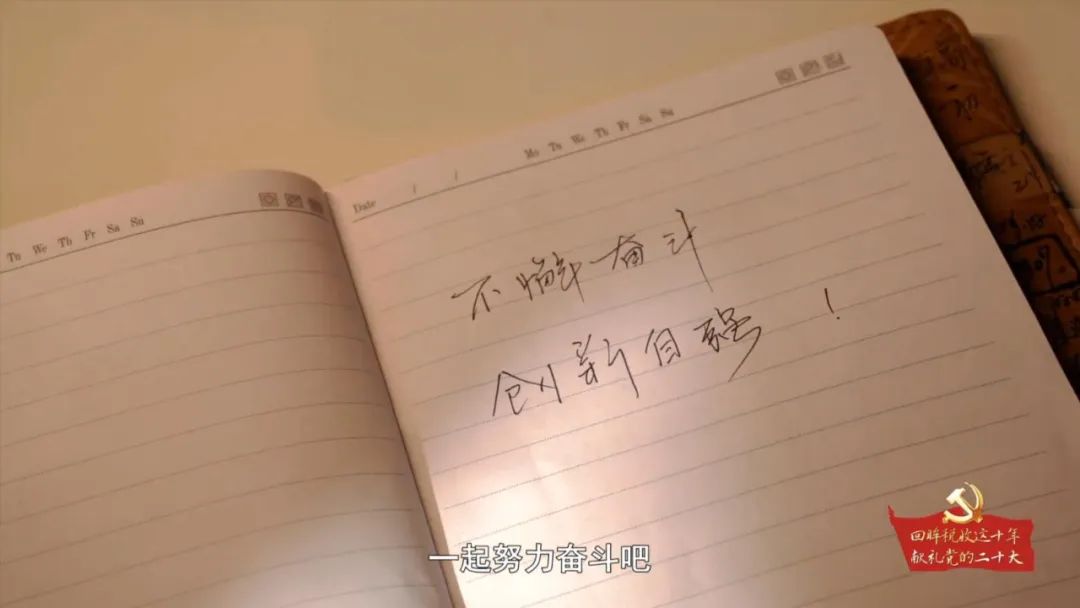 Tu We Th Fr Sa Su
Date / /
Mo Tu We Th Fr Sa Su
不懈奋斗
创新自强！
一起努力奋斗吧
回眸税收这十年
献礼党的二十大